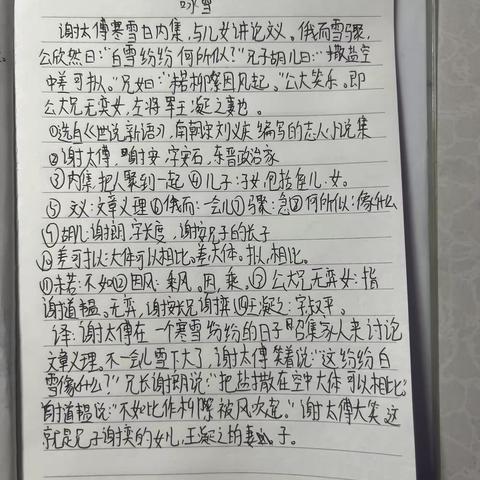 咏雪
谢太傅寒雪日内集，与儿女讲论文义。俄而雪骤，
公欣然曰："白雪纷纷何所似？"兄子胡儿曰："撒盐空
中差可拟。"兄女曰："未若柳絮因风起。"公大笑乐。即
公大兄无奕女，左将军王凝之妻也。
①选自《世说新语》，南朝宋刘义庆编写的志人小说集
②谢太傅，即谢安，字安石，东晋政治家
③内集：把人聚到一起 ④儿子：子女，包括侄儿，女。
⑤文义：文章义理 ⑥俄而：一会儿 ⑦骤：急 ⑧何所似：像什么
⑨胡儿：谢朗，字长度，谢安兄子的长子
⑩差可拟：大体可以相比。差，大体。拟，相比。
⑪未若：不如 ⑫因风：乘风。因，乘。⑬公大兄无奕女：指
谢道韫。无奕，谢安长兄谢奕 ⑭王凝之：字叔平。
译：谢太傅在一个寒雪纷纷的日子召集家人来讨论
文章义理。不一会儿雪下大了，谢太傅笑着说："这纷纷白
雪像什么？"兄长谢朗说："把盐撒在空中大体可以相比"
谢道韫说："不如比作柳絮被风吹起。"谢太傅大笑，这
就是兄子谢奕的女儿，王凝之的妻子。